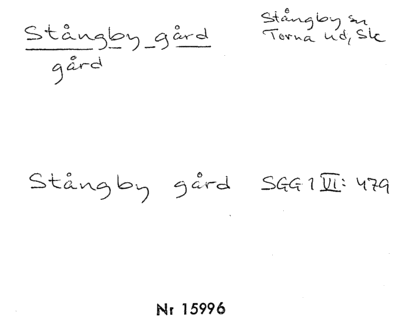 Stångby gård
gård
Stångby sn
Torna hd, Sk
Stångby gård SGG 1 VI: 479
Nr 15996